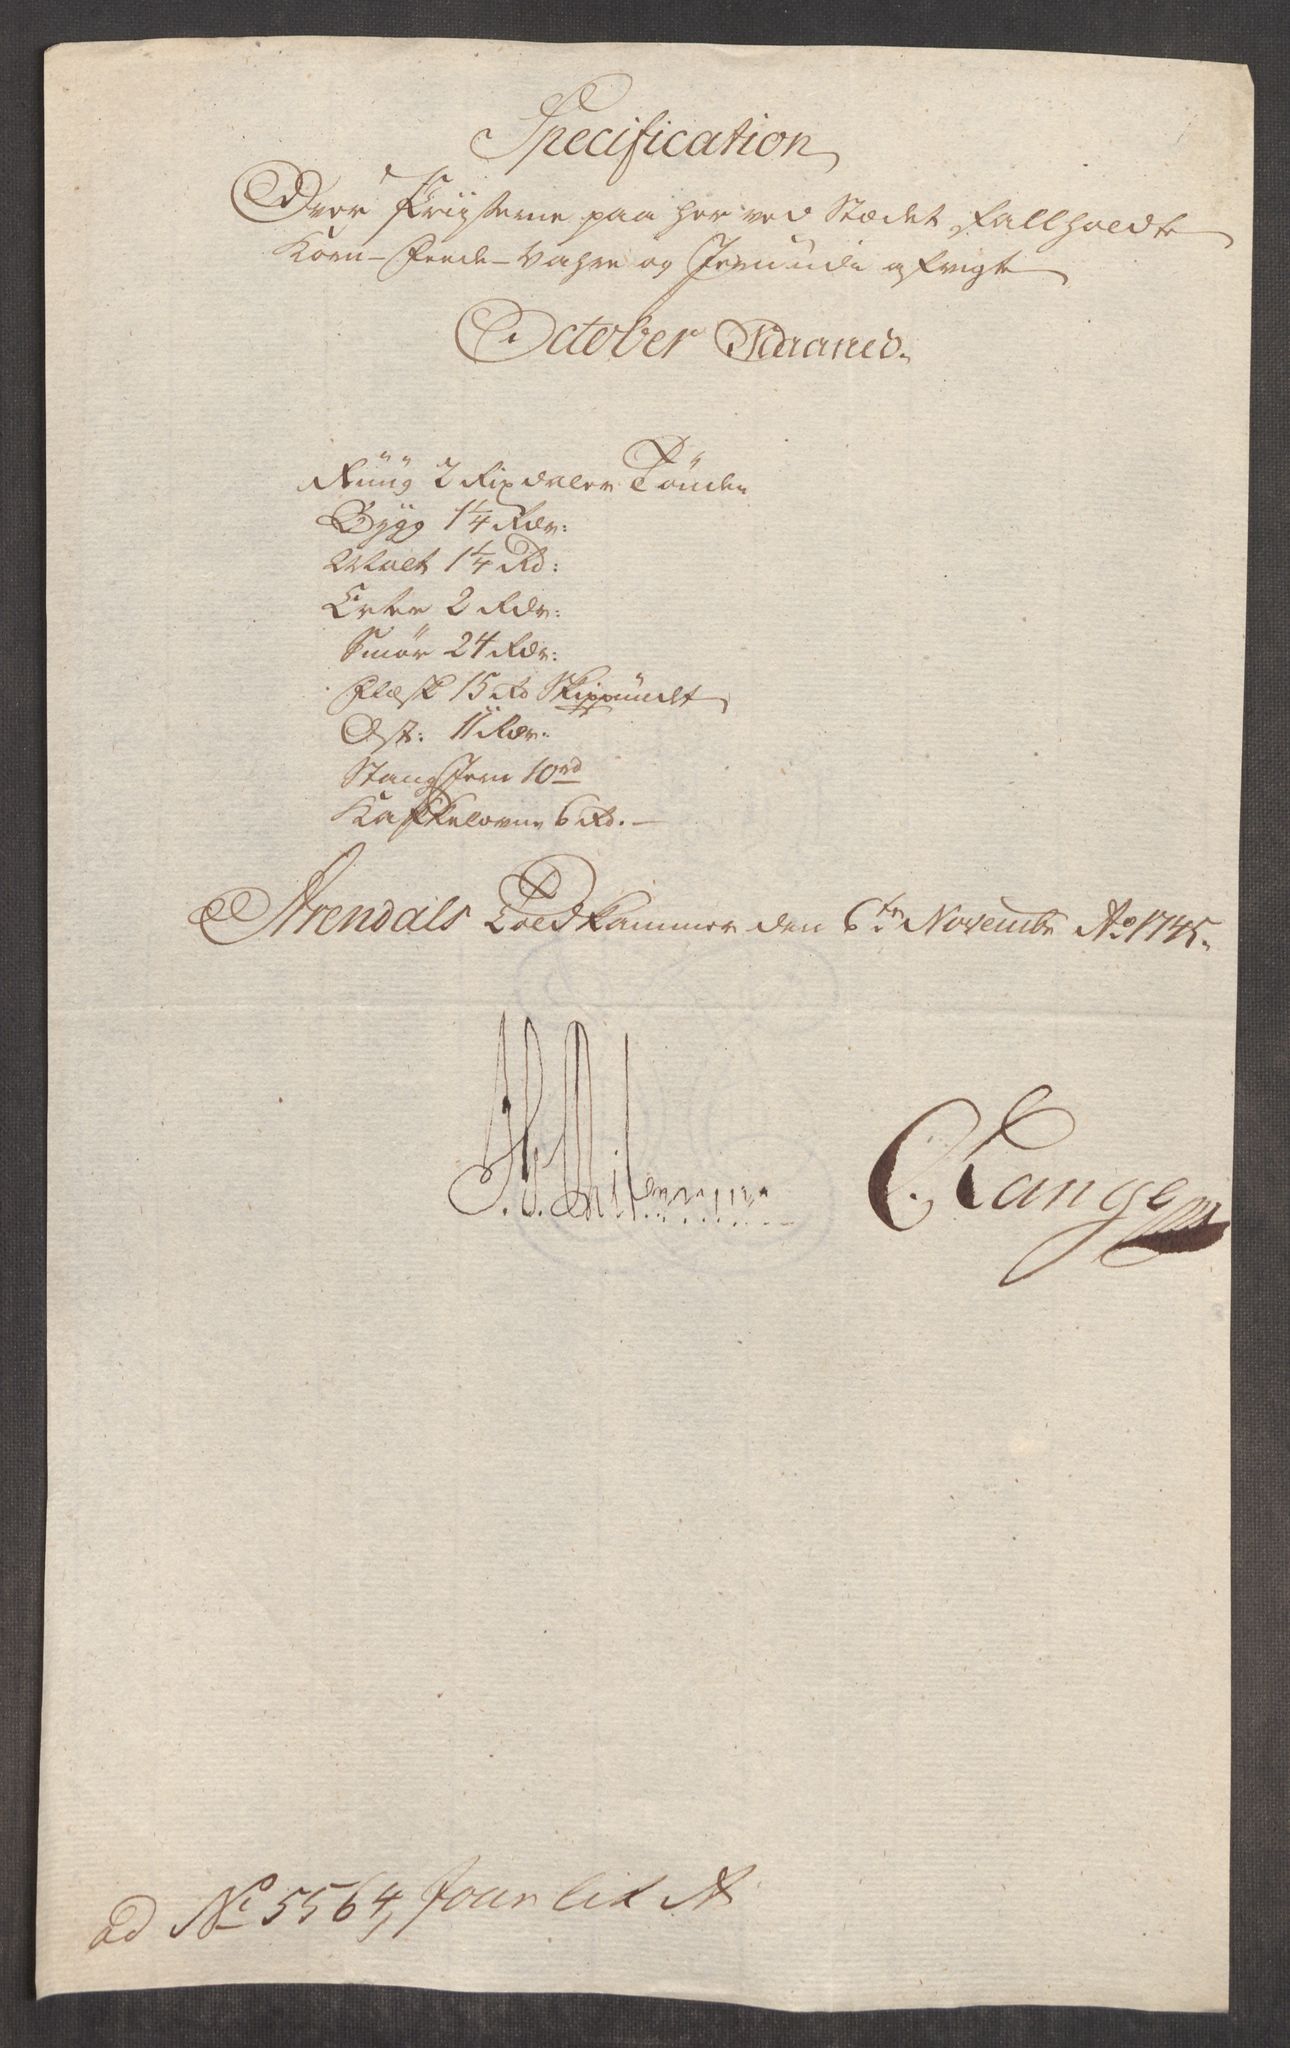 Specification
Over Priiserne paa her ved Stædet fallholdte
Korn- Feede- Vahre og Jern udi afvigte
October Maaned.
Rüüg 2 Rixdaler Tönden
Bÿgg 1¼ Rdr:
Malt 1¼ Rd:
Erter 2 Rdr:
Smör 24 Rdr:
Flæsk 15 Rd Skippündet
Ost: 11 Rdr:
Stang Jern 10 rd
Kakkelovne 6 Rd. —
Arendals Toldkammer den 6te Novembr Ao 1745.
C. Lange
ad No 5564, Jour lit A